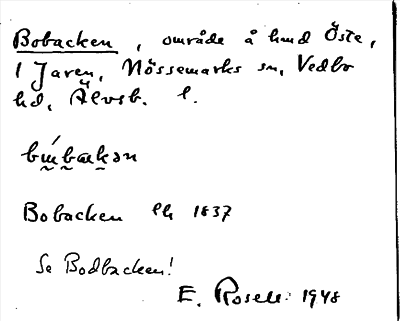 Bobacken, område å hmd Öste,
1 Jaren, Nössemarks sn, Vedbo
hd, Älvsb. l.
Bobacken lk 1837
Se Bodbacken!
E. Rosell 1948